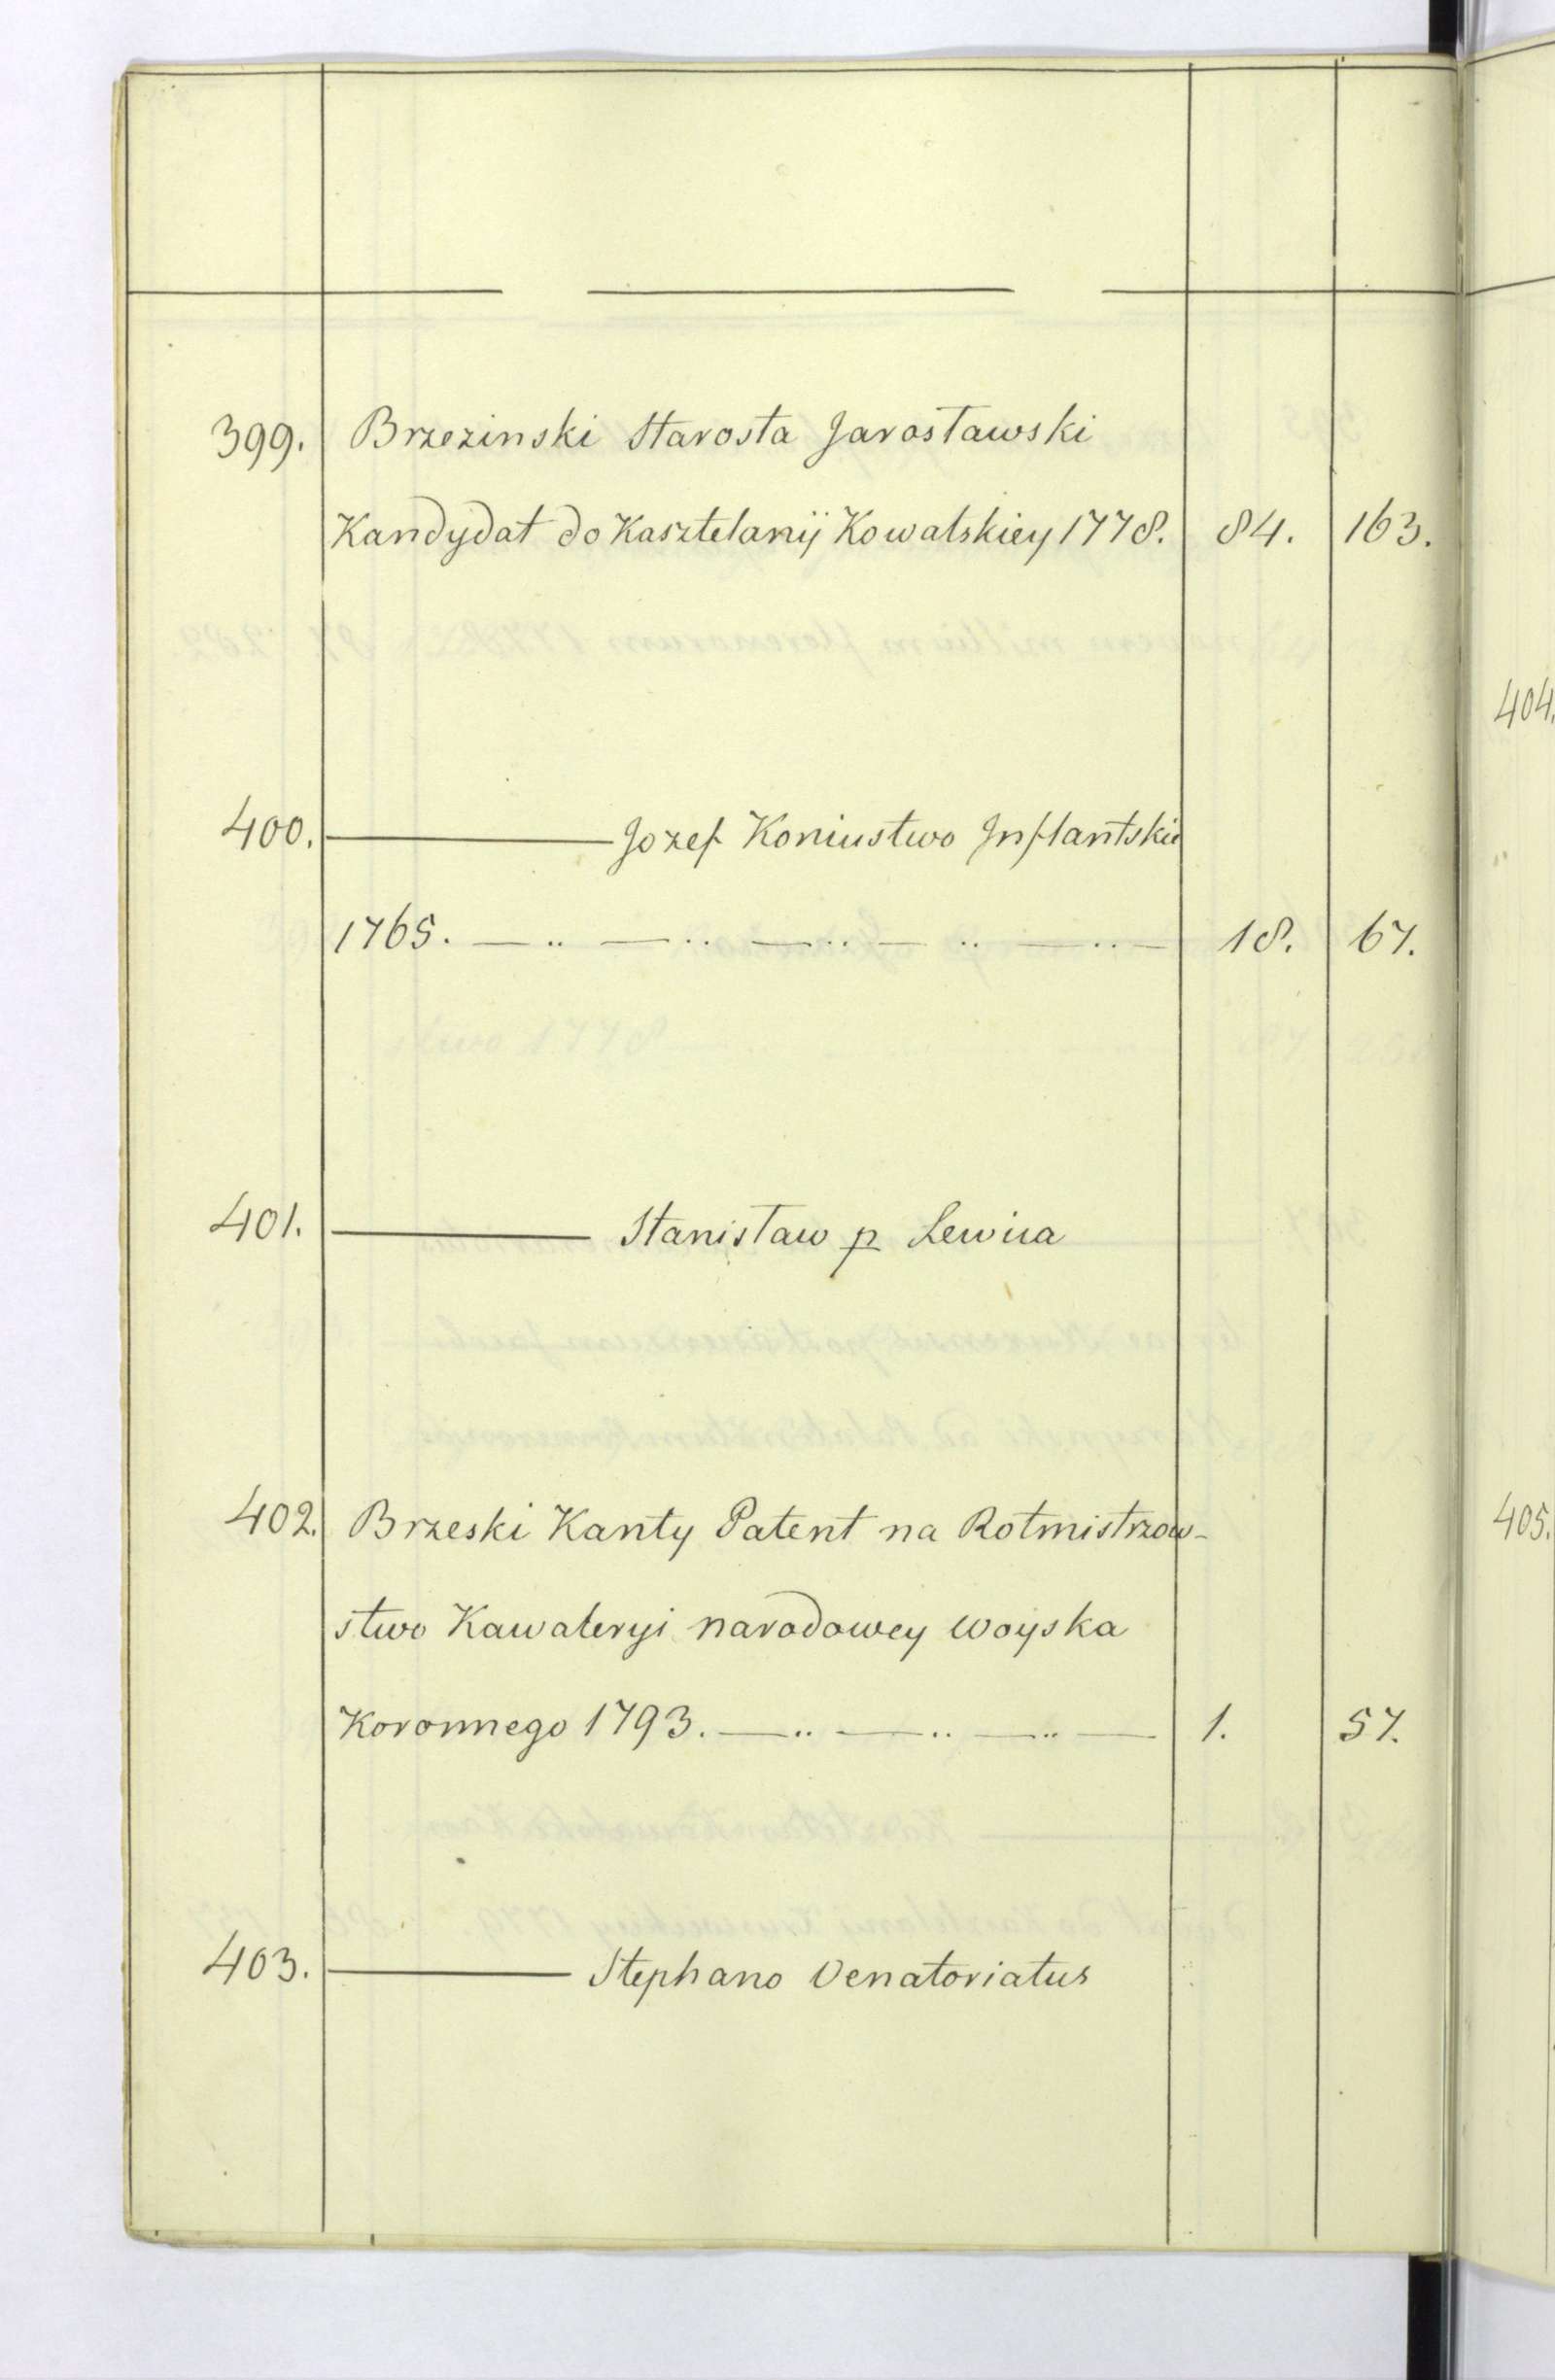 399. Brzezinski Starosta Jarosławski
Kandydat do Kasztelanij Kowalskiey 1778. 84. 163.
400. ——— Jozef Koniustwo Inflantskie
1765. — .. — .. — .. — .. — .. — 18. 67.
401. ——— Stanisław p Lewica
402. Brzeski Kanty Patent na Rotmistrzow-
stwo Kawaleryi narodowey Woyska
Koronnego 1793. — .. — .. — .. — 1. 57.
403. ——— Stephano Venatoriatus
404.
405.